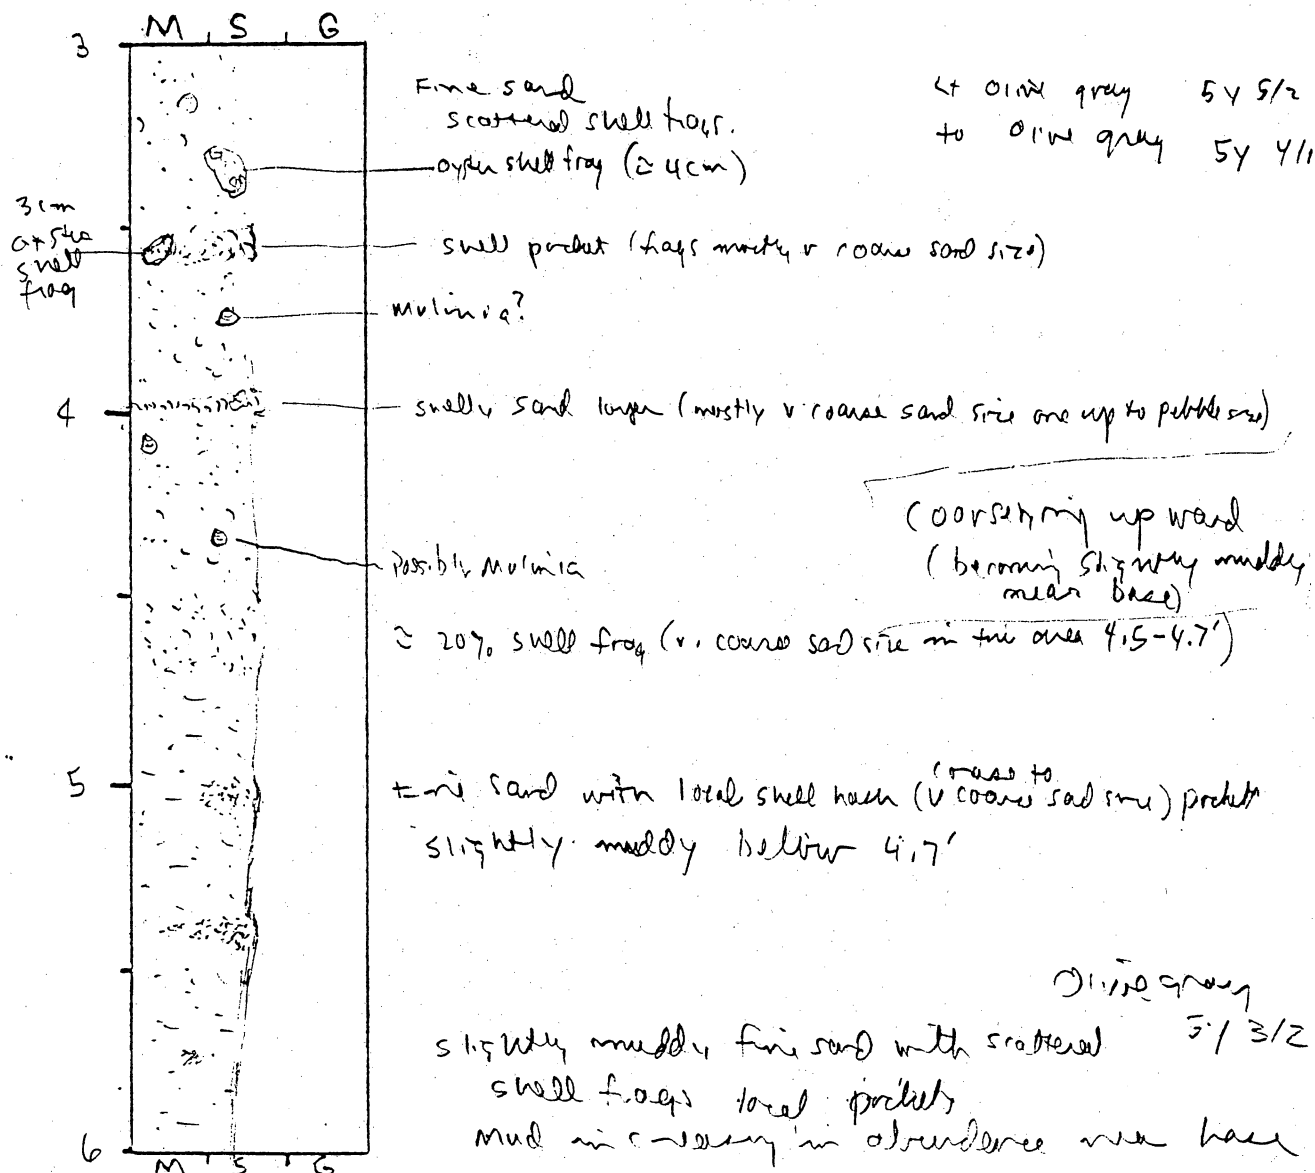 M S G
3
Fine sand
scattered shell frags.
Lt olive gray 5Y 5/2
to Olive gray 5Y 4/1
oyster shell frag (≈ 4cm)
3cm
oyster
shell
frag
shell pocket (frags mostly v coarse sand size)
Mulinia?
4
shelly sand layer (mostly v coarse sand size one up to pebble size)
Coarsening upward
(becoming slightly muddy
near base)
Possibly Mulinia
≈ 20% shell frag (v. coarse sad size in the area 4.5-4.7')
5
Fine sand with local shell hash (coarse to v coarse sad size) pockets
slightly muddy below 4.7'
Olive gray
5Y 3/2
slightly muddy fine sand with scattered
shell frags local pockets
Mud increasing in abundence near base
6
M S G